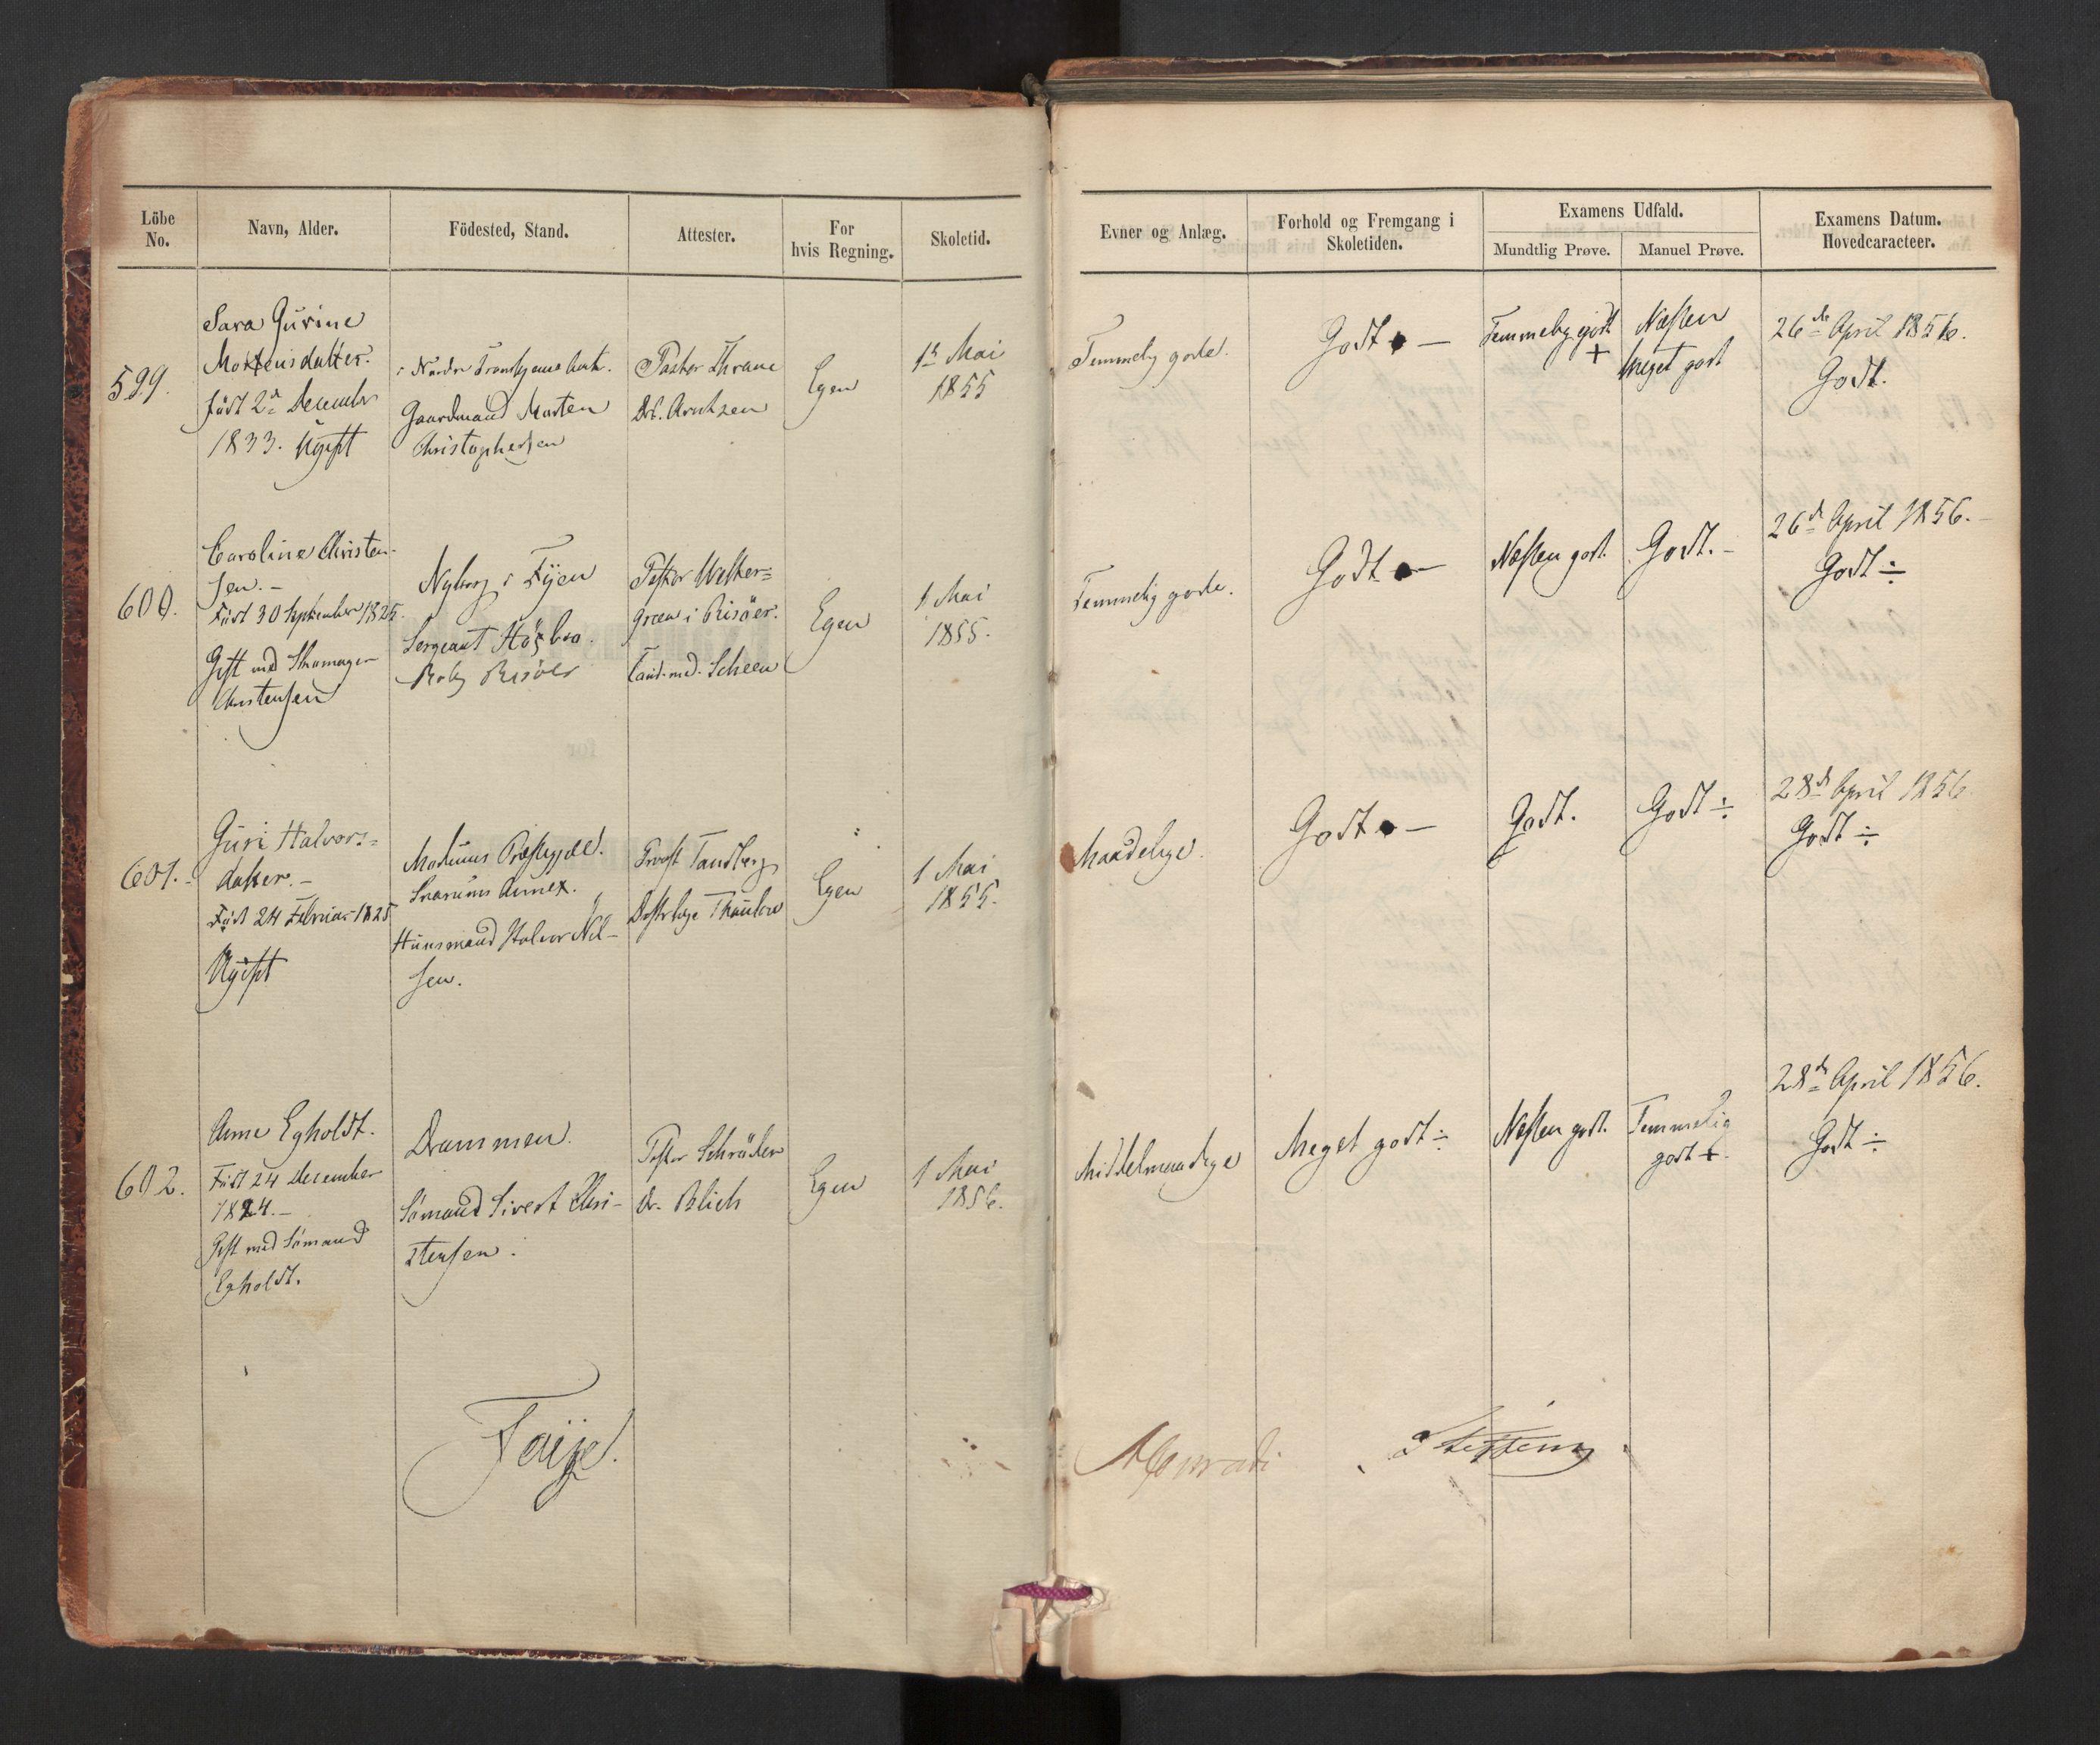 Löbe No.
Navn, Alder.
Födested, Stand.
Attester.
For hvis Regning.
Skoletid.
Evner og Anlæg.
Forhold og Fremgang i Skoletiden.
Examens Udfald.
Mundtlig Prøve.
Manuel Prøve.
Examens Datum. Hovedcaracteer.
599.
Sara Gurine
Mortensdatter.
født 2d December
1833. Ugift
i Nordre Trondhjems Amt.
Gaardmand Morten
Christophersen
Pastor Thrane
Dr. Arntzen
Egen
1st Mai
1855
Temmelig gode.
Godt –
Temmelig godt
+
Næsten
meget godt
26de April 1856.
Godt.
600.
Caroline Christen-
sen. –
Født 30 September 1825.
Gift med Skomager
Christensen
Nyborg i Fyen
Sergeant
Risöer
Pastor Welher=
green i Risöer.
Cand. med. Scheen
Egen
1 Mai
1855.
Temmelig gode.
Godt –
Næsten godt.
Godt. –
26d April 1856. –
Godt ÷
601.
Guri Halvors=
datter. –
Født 24 Februar 1825
Ugift
Modums Præstegjæld.
Snarums Annex.
Huusmand Halvor Nil-
sen.
Provst Tandberg
Distrlæge Thaulow
Egen
1 Mai
1855.
Maadelige.
Godt –
Godt.
Godt ÷
28d April 1856
Godt ÷
602.
Anne Egholdt.
Født 24 December
1824. –
Gift med Sömand
Egholdt.
Drammen.
Sömand Sivert Chri-
stensen.
Pastor Schröder
Dr. Blich
Egen
1 Mai
1856.
Middelmaadige
Meget godt ÷
Næsten godt.
Temmelig
godt +.
28d April 1856.
Godt ÷
Faye.
Conradi